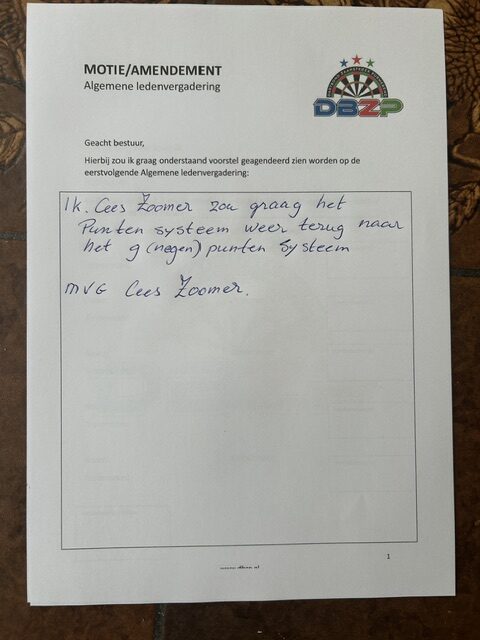 MOTIE/AMENDEMENT
Algemene ledenvergadering
DBZP
Geacht bestuur,
Hierbij zou ik graag onderstaand voorstel geagendeerd zien worden op de
eerstvolgende Algemene ledenvergadering:
Ik. Cees Zoomer zou graag het
Punten systeem weer terug naar
het 9 (negen) punten systeem
MVG Cees Zoomer.
1